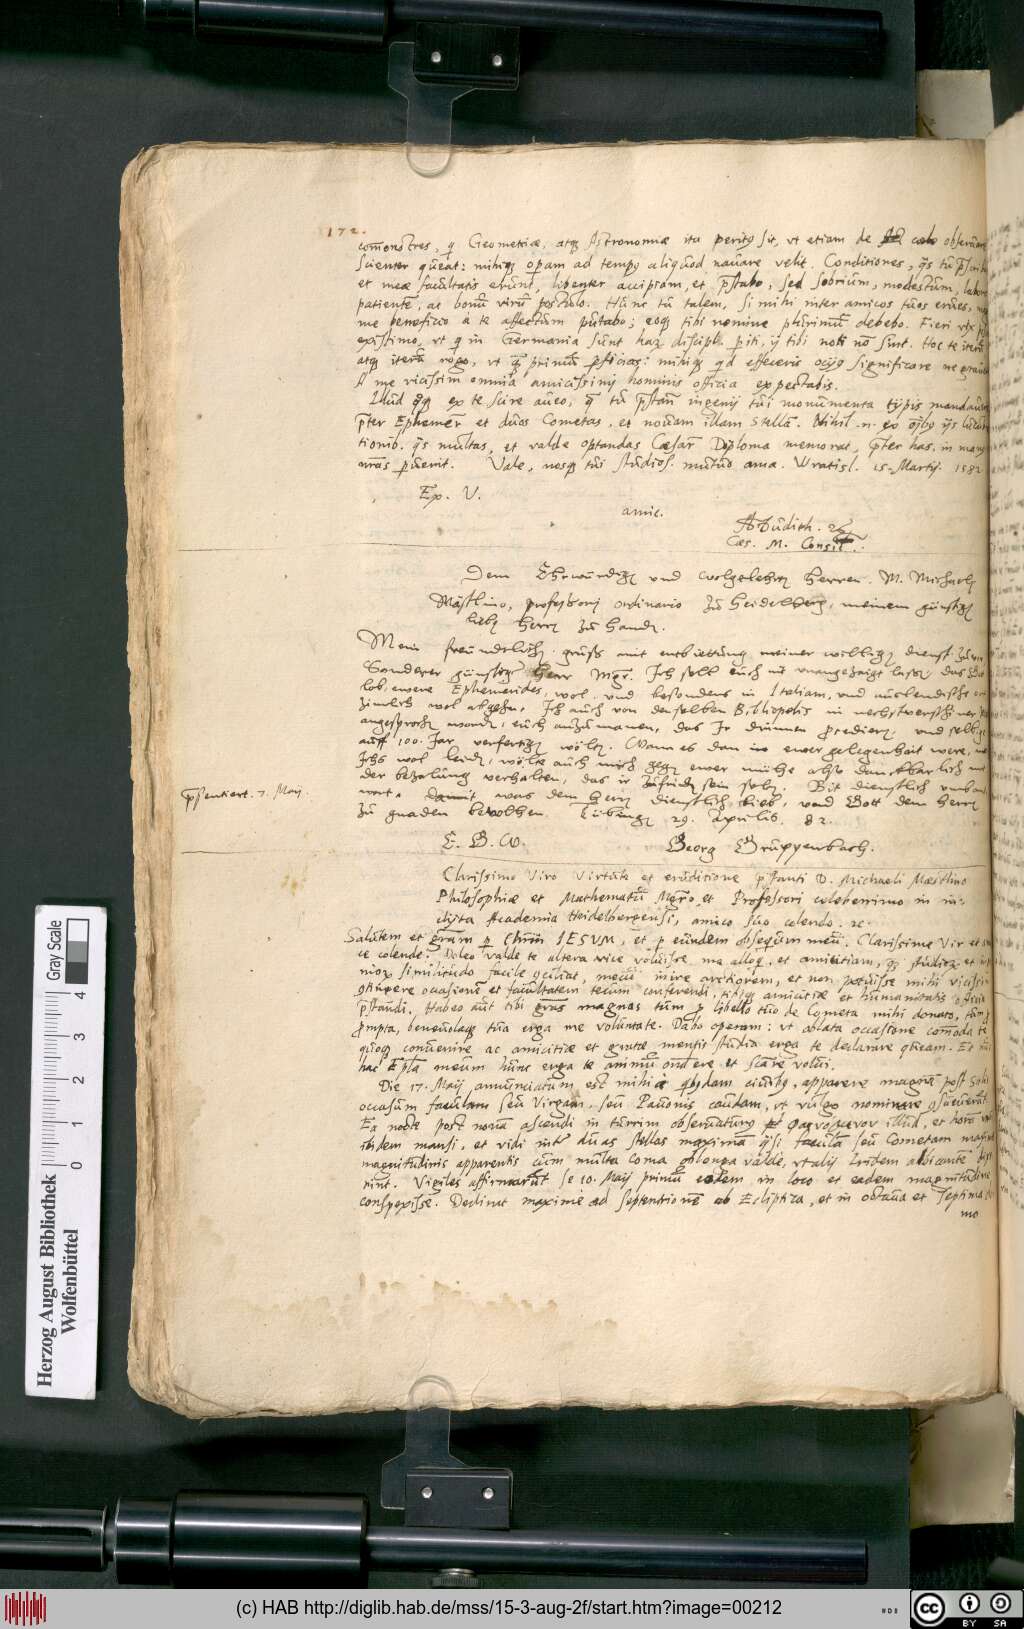 172.
com̄onstres, q Geometriæ, atq; Astronomiæ ita peritus sit, vt etiam de cœlo observare
scienter queat: mihiq; operam ad tempus aliquod navare velit. Conditiones, qs tu
et meæ facultatis erunt, libenter accipiam, et præstabo, sed sobrium, modestum,
patientē, ac bonū virū postulo. Hunc tu talem, si mihi inter amicos tuos erues,
me beneficio à te affectum putabo; eoq; tibi nomine plurimū debebo. Fieri vix
existimo, vt q in Germania sunt haz discipl. piti, ij tibi noti nō sint. Hoc te iterū
atq; iterū rogo, vt primū pficias: mihiq; qd effeceris ocijs significare ne
A me vicissim omnia amicissimj hominis officia expectabis.
Illud qq; ex te scire aveo, tu ingenij tui monumenta typis mandaveris
pter Ephemer et duos Cometas, et novam illam Stellā. Nihil .n. ex ijs
tionib. qs multas, et valde optandas Cæsar Diploma memorat, pter has, in manus
nras pvenit. Vale, nosq; tui studios. mutuo ama. Wratisl. 15. Martij. 1582
Ex. V.
amic.
Dudith.
Cæs. M. Consil.
Dem Ehrwürdigen vnd wolgelehrten Herren M. Michaeli
Mästlino, professorj ordinario zu Heidelberg, meinem günstigen
lieben Herrn zu handen.
Mein freundtlichen gruß mit entbiettung meiner willigen dienst zuvor
Sonderer günstiger Herr Mgr. Ich soll euch nit vnangezaigt lassen, das Gott
lob, ewere Ephemerides, wol vnd besonders in Italiam, vnd auslendische ort
zimlich wol abgehn, Ich auch von denselben Bibliopolis in nechstverschiner
angesprochen worden, euch anzumanen, das Jr drinnen procedieren, vnd selbige
auff 100. Jar verfertigen wölten. Wann es dan in ewer gelegenhait were,
Ichs wol leiden, wölte auch mich gegen ewer mühe also danckbarlich mit
der bezalung verhalten, das ir zufriden sein solten. Bit dienstlich
wort. was dem Herrn dienstlich lieb, vnd Gott dem Herrn
zu gnaden bevolhen. Tübingen 29. Aprilis. 82.
præsentiert. 7. Maij.
E. E. W.
Georg Gruppenbach.
Clarissimo Viro Virtute et eruditione pstanti D. Michaeli Mæstlino
Philosophiæ et Mathematū Mgro, et Professori celeberrimo in in-
clyta Academia Heidelbergensi, amico suo colendo. &c.
Salutem et gram p Chrm IESVM, et p eundem obsequium meū. Clarissime Vir et
ce colende. Doleo valde te altera vice voluisse me alloq, et amicitiam, studioz et
morz similitudo facile cciliat, mecū inire arctiorem, et non potuisse mihi vicissim
ctingere occasionē et facultatem tecum conferendi, tibiq; amicitiæ et humanitatis officia
pstandi. Habeo aut tibi gras magnas tum p libello tuo de Cometa mihi donato, tum
prompta, benevolaq; tua erga me voluntate. Dabo operam: vt oblata occasione com̄oda te
quoq; convenire ac amicitiæ et gratæ mentis studia erga te declarare queam. Et
hac Epla meum hunc erga te animū ondere et voluj.
Die 17. Maij annunciatum est mihi à qbusdam civibus, apparere magnā post Solis
occasum faculam seu Virgam, seu Pavonis caudam, vt vulgo nominare csueverat.
Ea nocte post nonā ascendi in turrim observaturus φαινόμενον illud, et horā
ibidem mansi, et vidi inter duas stellas maximā qsi facula seu Cometam
magnitudinis apparentis cum multa coma oblonga valde, vt alij Iridem albicantē
rint. Vigiles affirmarūt se 10. Maij primū eodem in loco et eadem magnitudine
conspexisse. Declinat maximè ad Septentrionē ab Ecliptica, et in octava et septima
mo
Herzog August Bibliothek
Wolfenbüttel
Gray Scale
0 1 2 3 4
(c) HAB http://diglib.hab.de/mss/15-3-aug-2f/start.htm?image=00212
HAB
cc BY SA